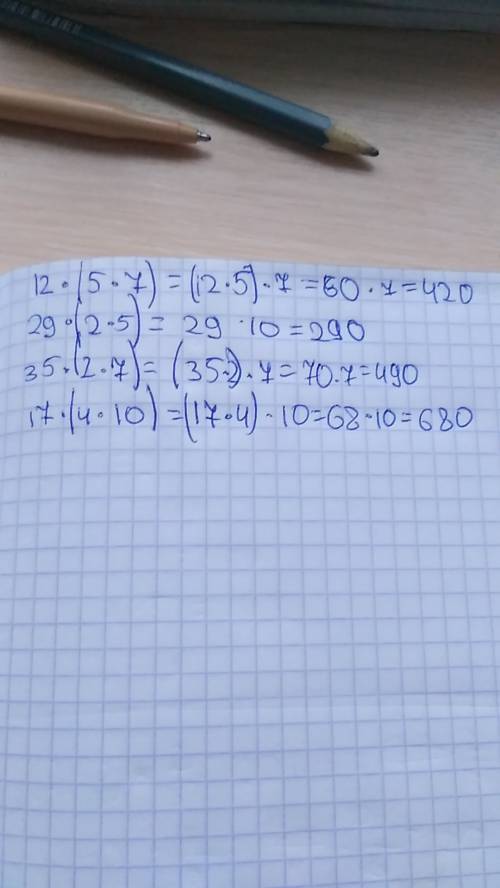 12·(5·7)=(12·5)·7=60·7=420
29·(2·5)=29·10=290
35·(2·7)=(35·2)·7=70·7=490
17·(4·10)=(17·4)·10=68·10=680